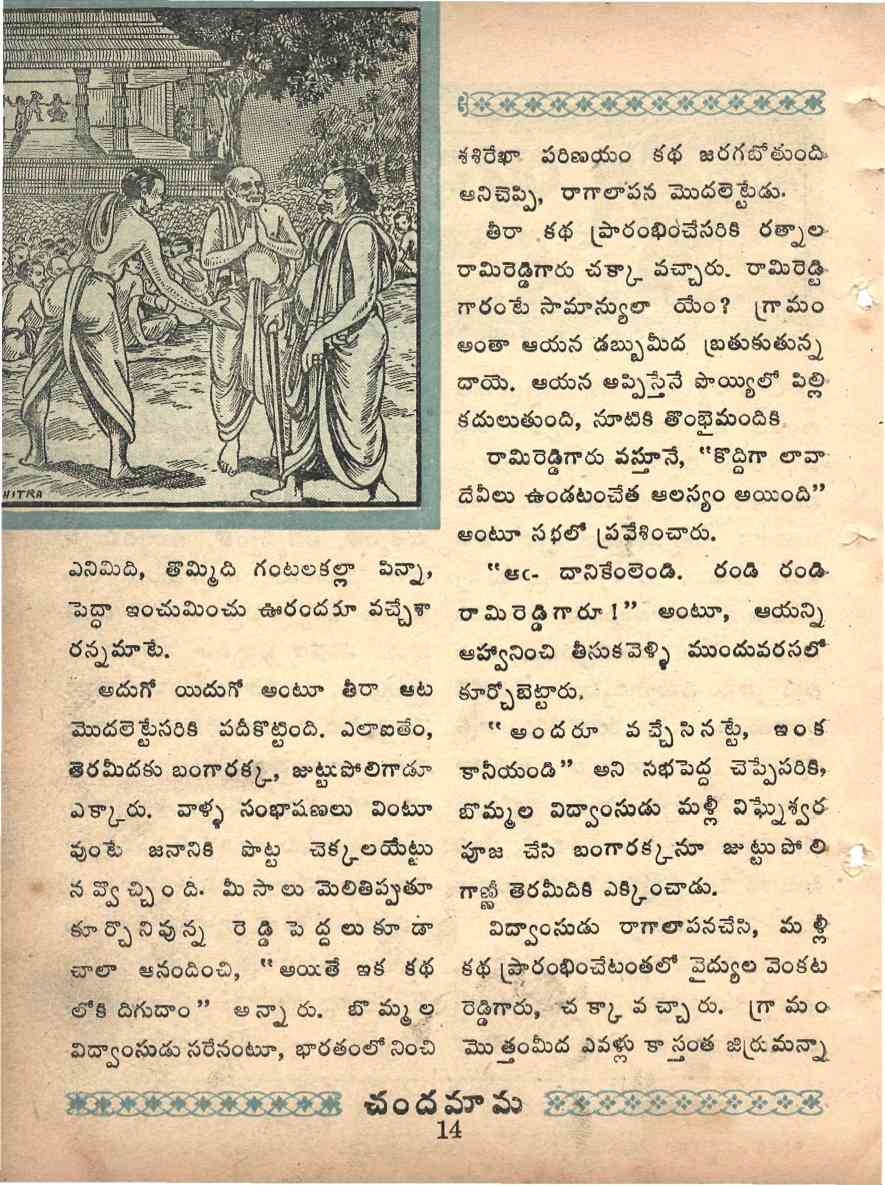 HITRA
ఎనిమిది, తొమ్మిది గంటలకల్లా పిన్నా,
పెద్దా ఇంచుమించు ఊరందరూ వచ్చేశా
రన్నమాటే.
అదుగో యిదుగో అంటూ తీరా ఆట
మొదలెట్టేసరికి పదీకొట్టింది. ఎలాఐతేం,
తెరమీదకు బంగారక్క, జుట్టుపోలిగాడూ
ఎక్కారు. వాళ్ళ సంభాషణలు వింటూ
వుంటే జనానికి పొట్ట చెక్కలయేట్టు
నవ్వొచ్చింది. మీసాలు మెలితిప్పుతూ
కూర్చొనివున్న రెడ్డి పెద్దలు కూడా
చాలా ఆనందించి, “అయితే ఇక కథ
లోకి దిగుదాం” అన్నారు. బొమ్మల
విద్వాంసుడు సరేనంటూ, భారతంలో నించి
శశిరేఖా పరిణయం కథ జరగబోతుంది
అనిచెప్పి, రాగాలాపన మొదలెట్టేడు.
తీరా కథ ప్రారంభించేసరికి రత్నాల
రామిరెడ్డిగారు చక్కా వచ్చారు. రామిరెడ్డి
గారంటే సామాన్యులా యేం? గ్రామం
అంతా ఆయన డబ్బుమీద బ్రతుకుతున్న
దాయె. ఆయన అప్పిస్తేనే పొయ్యిలో పిల్లి
కదులుతుంది, నూటికి తొంభైమందికి.
రామిరెడ్డిగారు వస్తూనే, “కొద్దిగా లావా
దేవీలు ఉండటంచేత ఆలస్యం అయింది”
అంటూ సభలో ప్రవేశించారు.
“ఆఁ- దానికేంలెండి. రండి రండి
రామిరెడ్డిగారూ!” అంటూ, ఆయన్ని
ఆహ్వానించి తీసుకవెళ్ళి ముందువరసలో
కూర్చోబెట్టారు.
“అందరూ వచ్చేసినట్టే, ఇంక
కానీయండి” అని సభపెద్ద చెప్పేపరికి,
బొమ్మల విద్వాంసుడు మళ్లీ విఘ్నేశ్వర
పూజ చేసి బంగారక్కనూ జుట్టుపోలి
గాణ్ణీ తెరమీదికి ఎక్కించాడు.
విద్వాంసుడు రాగాలాపనచేసి, మళ్లీ
కథ ప్రారంభించేటంతలో వైద్యుల వెంకట
రెడ్డిగారు, చక్కా వచ్చారు. గ్రామం
మొత్తంమీద ఎవళ్లు కాస్తంత జిర్రుమన్నా
చందమామ
14